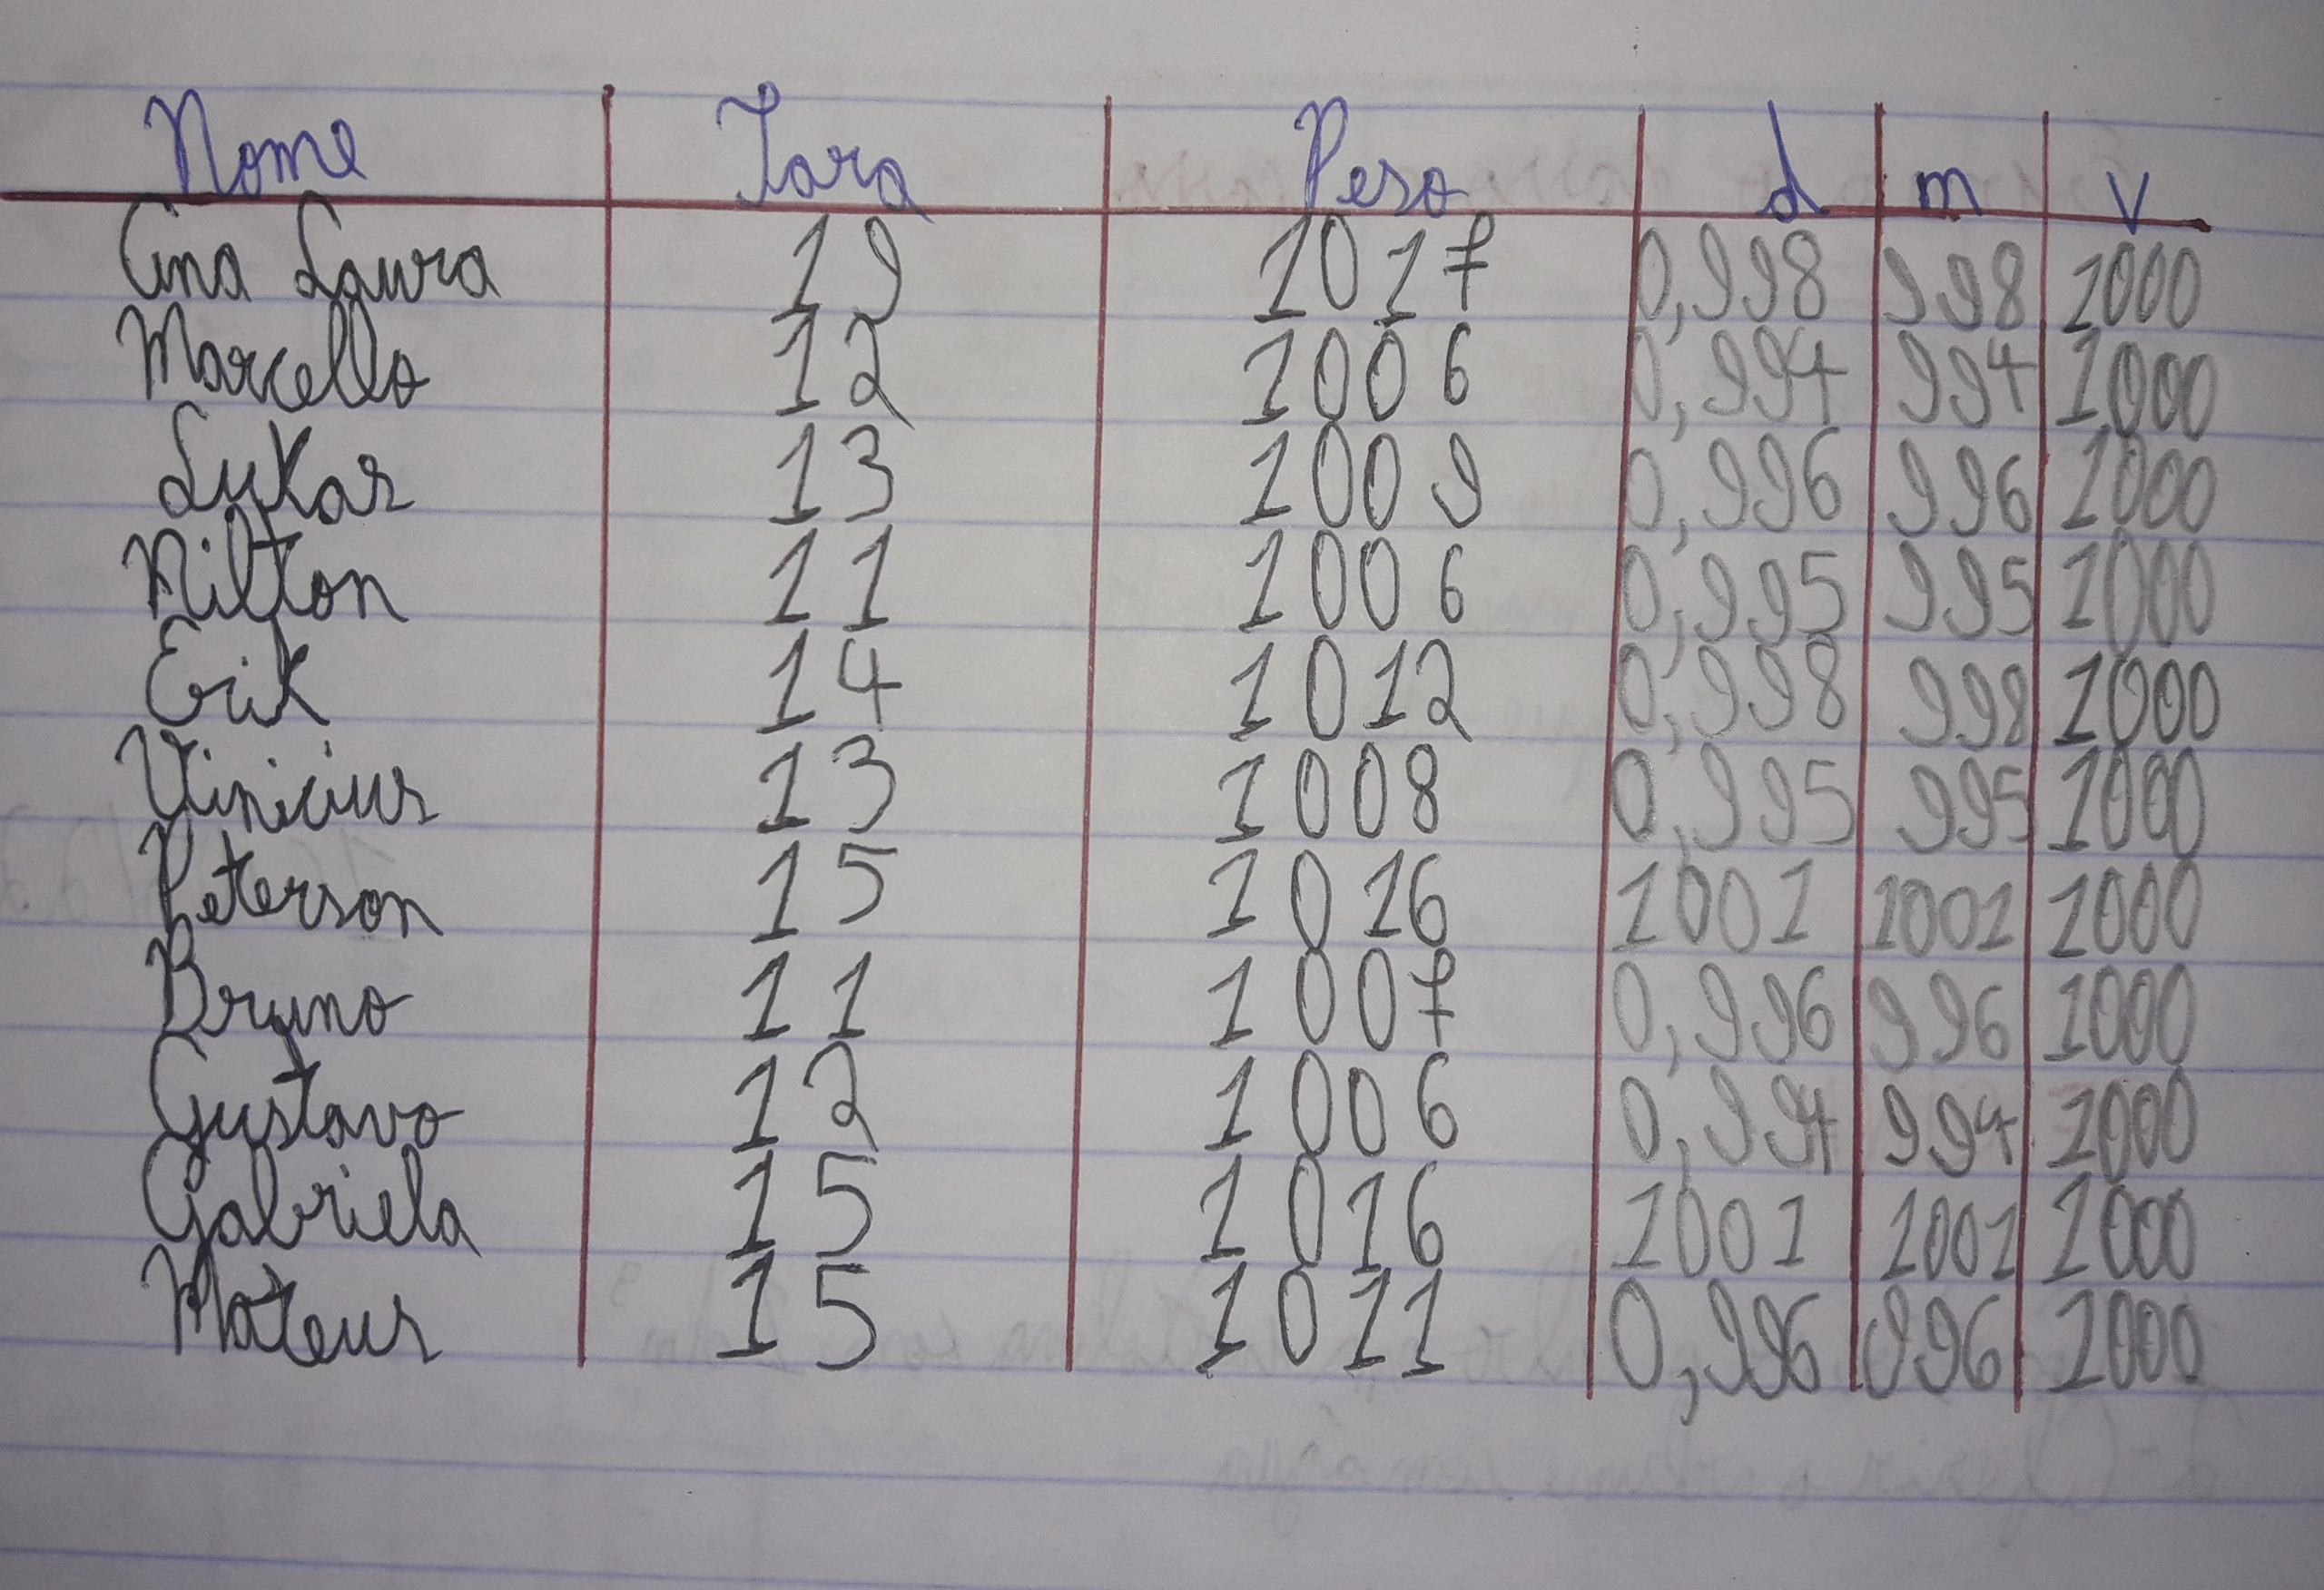 Nome Tara Peso d m v
Ana Laura 19 1017 0,998 998 1000
Marcello 12 1006 0,994 994 1000
Lukas 13 1009 0,996 996 1000
Nilton 11 1006 0,995 995 1000
Erik 14 1012 0,998 998 1000
Vinicius 13 1008 0,995 995 1000
Peterson 15 1016 1001 1001 1000
Bruno 11 1007 0,996 996 1000
Gustavo 12 1006 0,994 994 1000
Gabriela 15 1016 1001 1001 1000
Mateus 15 1011 0,996 996 1000